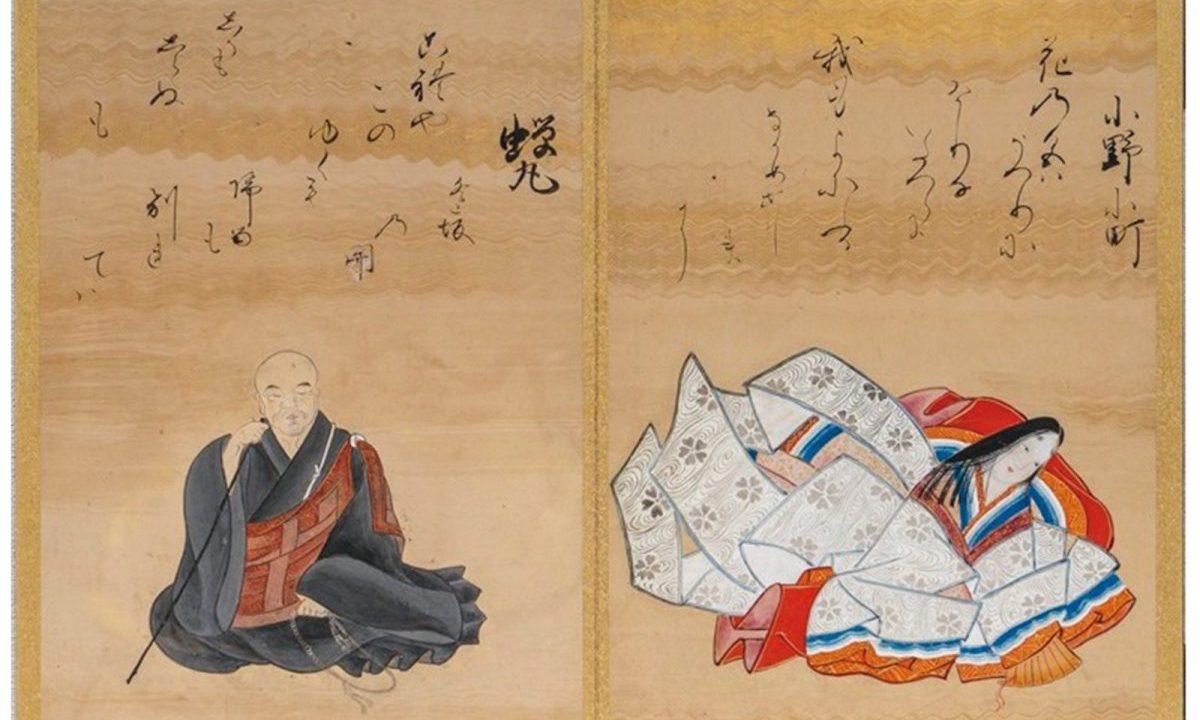 小野小町
花乃色ハ
うつりに
けりな
いたつらに
我身よにふる
なかめせし
ま
に
蝉丸
これや
この
ゆくも
帰るも
別れ
てハ
しるも
しらぬ
も
逢坂
乃
関